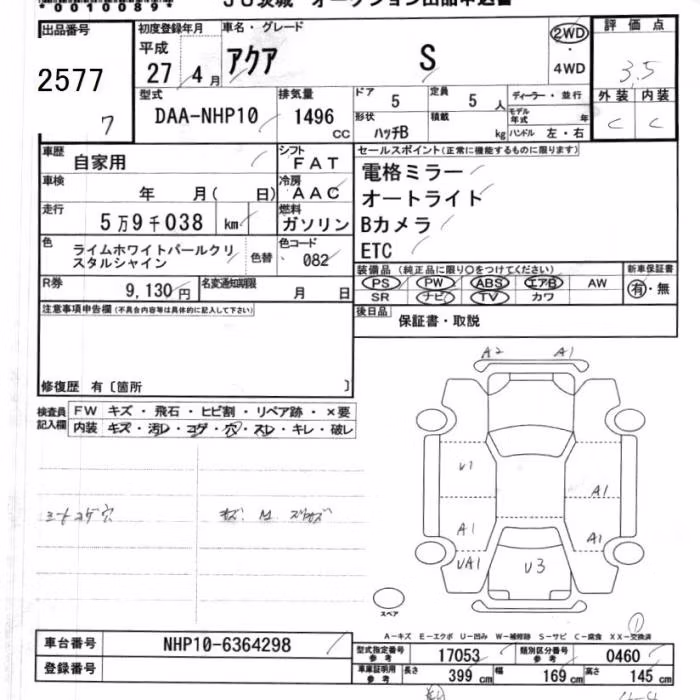 *0010089*
JU茨城 オークション出品申込書
出品番号
2577
7
初度登録年月
平成
27年 4月
車名・グレード
アクア S
2WD
・
4WD
評価点
3.5
外装 内装
C C
型式
DAA-NHP10
排気量
1496
CC
ドア
5
定員
5 人
形状
ハッチB
積載
kg
ディーラー・並行
モデル年式 年
ハンドル 左・右
車歴
自家用
シフト
FAT
車検
年 月( 日)
冷房
AAC
走行
5万9千038 km
燃料
ガソリン
色
ライムホワイトパールクリスタルシャイン
色替
色コード
082
R券
9,130円
名変通知期限
月 日
セールスポイント(正常に機能するものに限ります)
電格ミラー
オートライト
Bカメラ
ETC
装備品 (純正品に限り○をつけてください)
PS PW ABS エアB AW
SR ナビ TV カワ
新車保証書
有・無
後日品
保証書・取説
注意事項申告欄(不具合内容等は具体的に記入して下さい)
修復歴 有〔箇所 〕
検査員記入欄
FW キズ・飛石・ヒビ割・リペア跡・×要
内装 キズ・汚レ・コゲ・穴・スレ・キレ・破レ
シートコゲ穴
A2 A1
U1
A1
A1
A1
UA1
U3
スペア
A-キズ E-エクボ U-凹み W-補修跡 S-サビ C-腐食 XX-交換済
1
車台番号
NHP10-6364298
登録番号
型式指定番号
参考
17053
類別区分番号
参考
0460
車庫証明用
参考
長さ 399 cm 幅 169 cm 高さ 145 cm